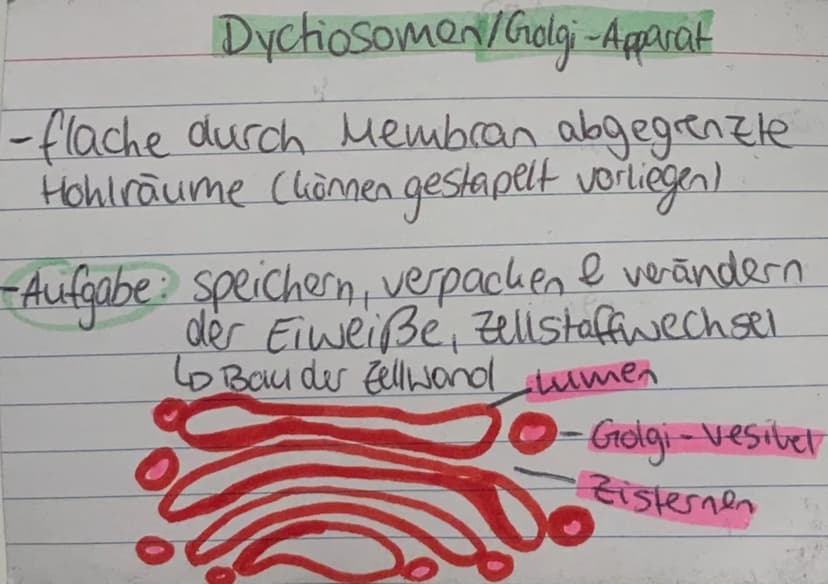 Dyctiosomen/Golgi-Apparat
- flache durch Membran abgegrenzte
Hohlräume (können gestapelt vorliegen)
- Aufgabe: speichern, verpacken & verändern
der Eiweiße, Zellstoffwechsel
↳ Bau der Zellwand
Lumen
- Golgi-Vesikel
Zisternen